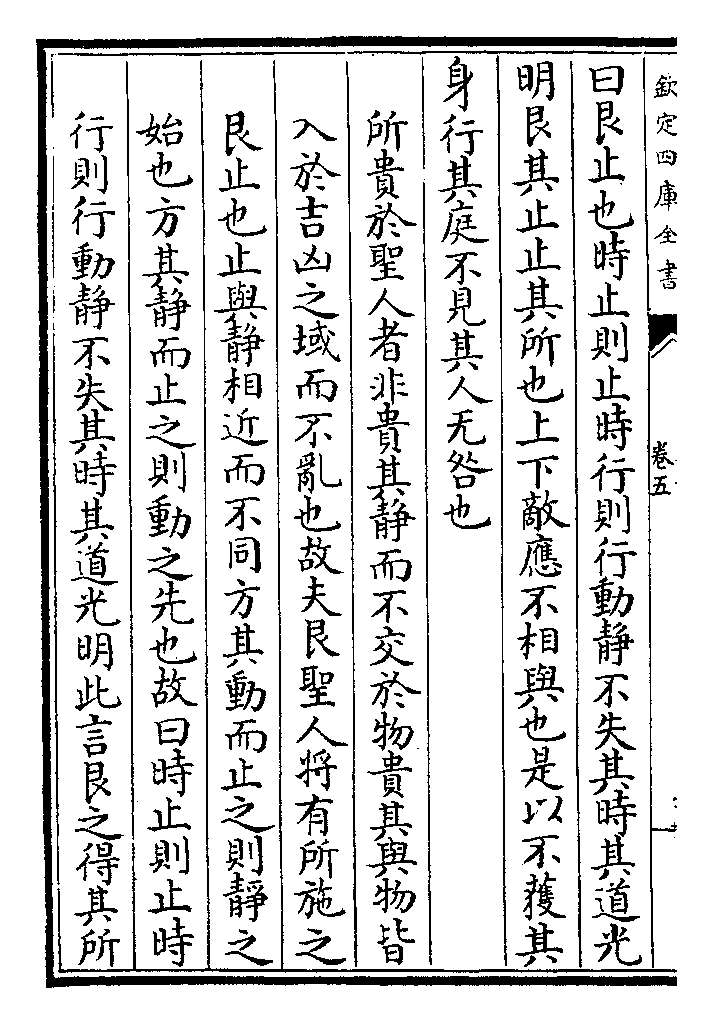 欽定四庫全書
卷五
曰艮止也時止則止時行則行動靜不失其時其道光
明艮其止止其所也上下敵應不相與也是以不獲其
身行其庭不見其人无咎也
所貴於聖人者非貴其靜而不交於物貴其與物皆
入於吉凶之域而不亂也故夫艮聖人將有所施之
艮止也止與靜相近而不同方其動而止之則靜之
始也方其靜而止之則動之先也故曰時止則止時
行則行動靜不失其時其道光明此言艮之得其所